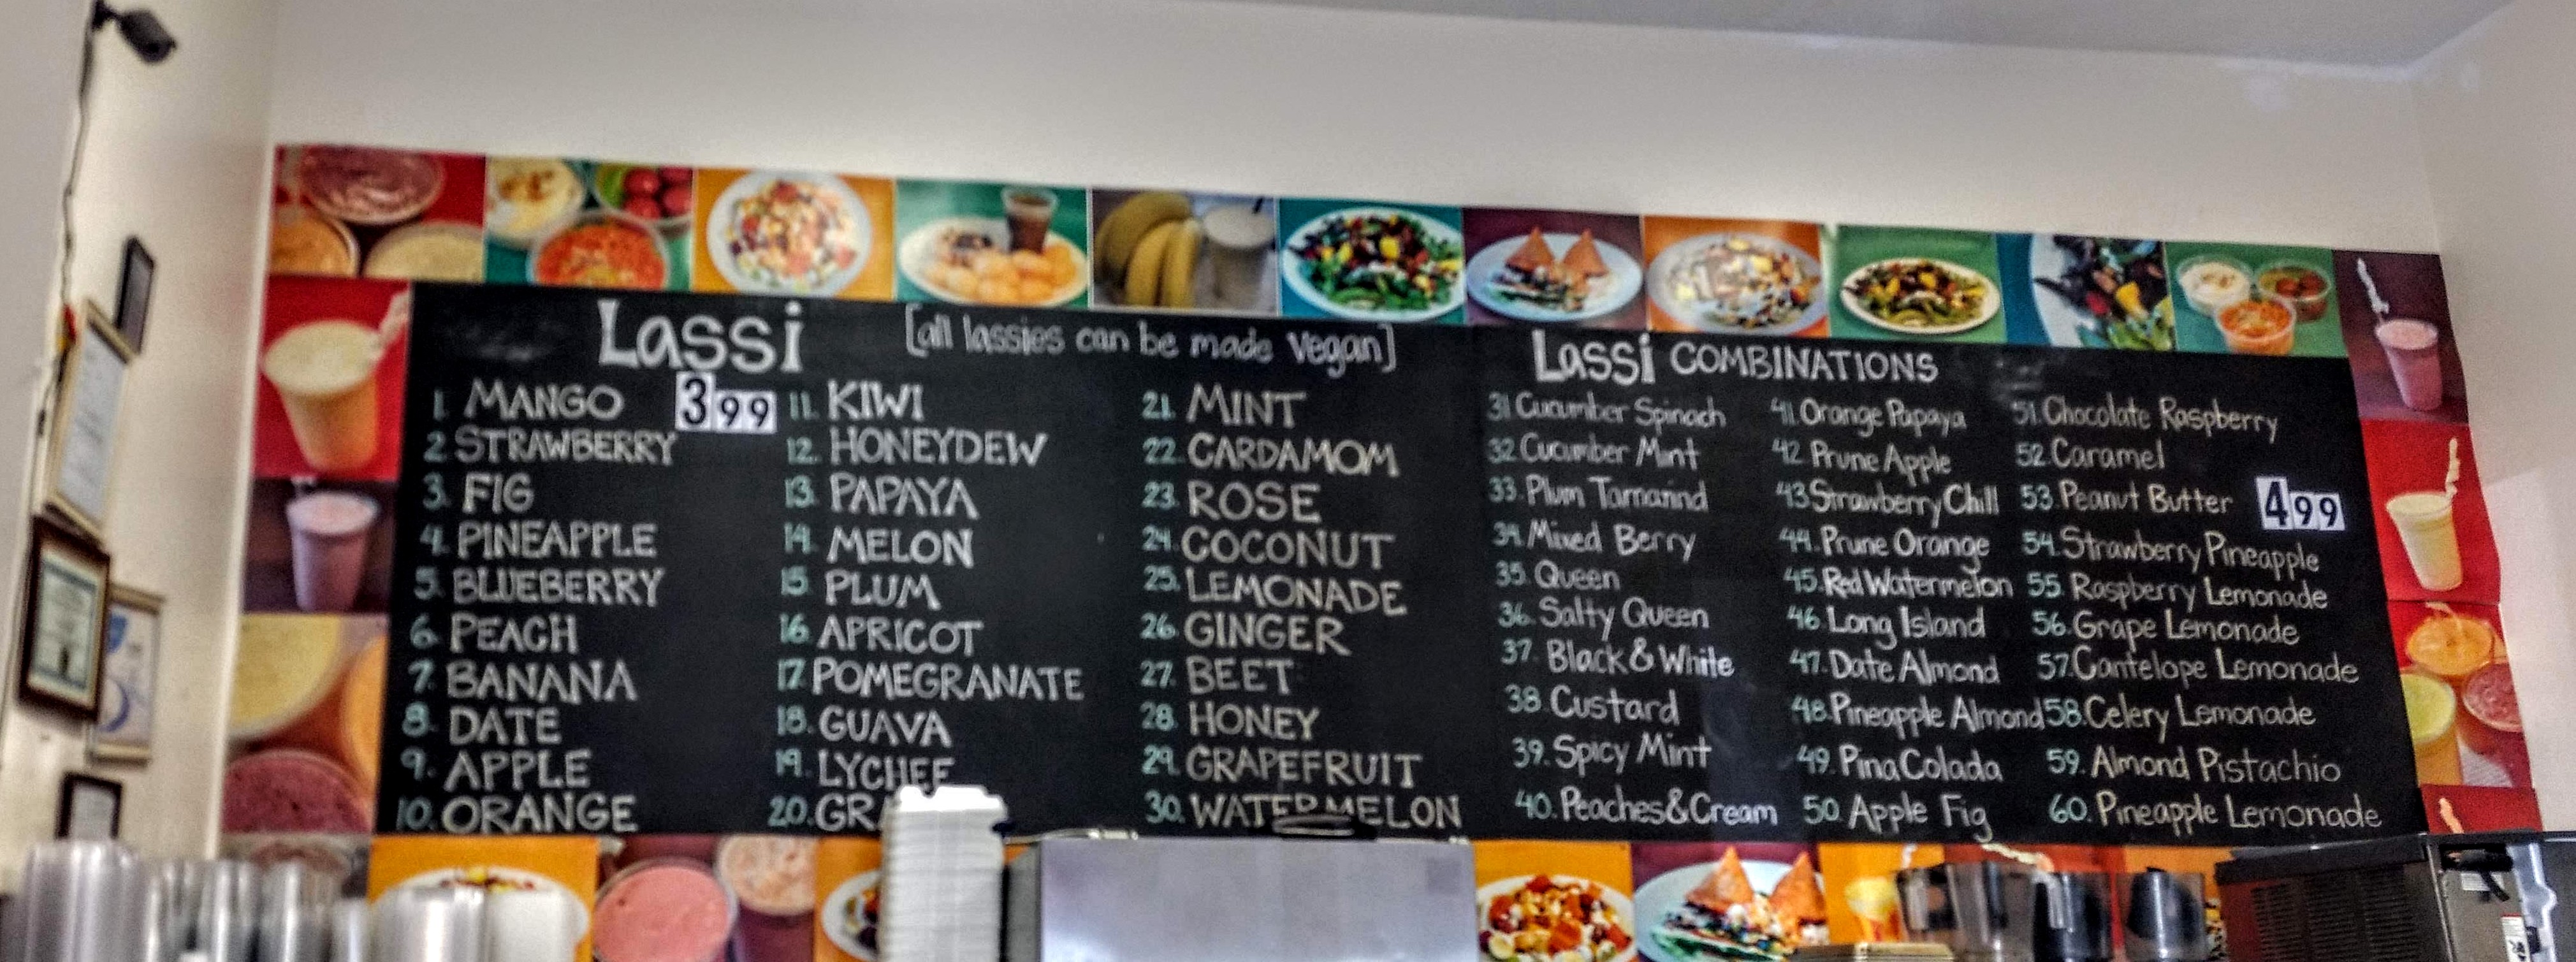 Lassi [all lassies can be made vegan]
1. MANGO 3 99
2. STRAWBERRY
3. FIG
4. PINEAPPLE
5. BLUEBERRY
6. PEACH
7. BANANA
8. DATE
9. APPLE
10. ORANGE
11. KIWI
12. HONEYDEW
13. PAPAYA
14. MELON
15. PLUM
16. APRICOT
17. POMEGRANATE
18. GUAVA
19. LYCHEE
20.
21. MINT
22. CARDAMOM
23. ROSE
24. COCONUT
25. LEMONADE
26. GINGER
27. BEET
28. HONEY
29. GRAPEFRUIT
30. WATERMELON
Lassi COMBINATIONS
31. Cucumber Spinach
32. Cucumber Mint
33. Plum Tamarind
34. Mixed Berry
35. Queen
36. Salty Queen
37. Black & White
38. Custard
39. Spicy Mint
40. Peaches & Cream
41. Orange Papaya
42. Prune Apple
43 Strawberry Chill
44. Prune Orange
45. Red Watermelon
46. Long Island
47. Date Almond
48. Pineapple Almond
49. Pina Colada
50. Apple Fig
51. Chocolate Raspberry
52. Caramel
53. Peanut Butter 4 99
54. Strawberry Pineapple
55. Raspberry Lemonade
56. Grape Lemonade
57. Cantelope Lemonade
58. Celery Lemonade
59. Almond Pistachio
60. Pineapple Lemonade